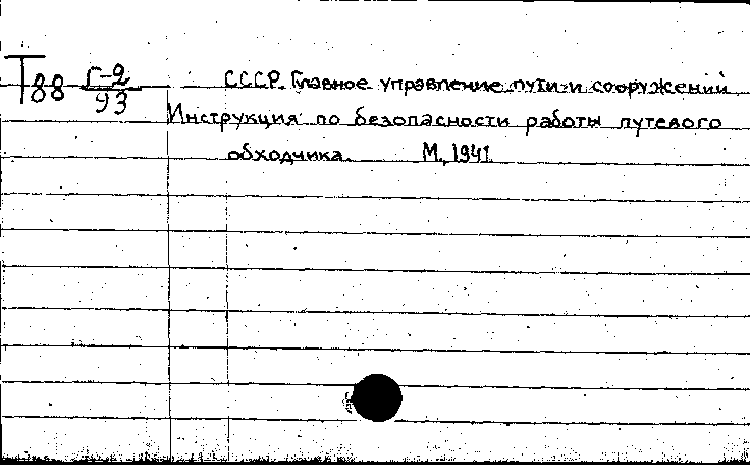 Т88 Г-2
93
СССР. Главное управление пути и сооружений
Инструкция по безопасности работы путевого
обходчика. М., 1941